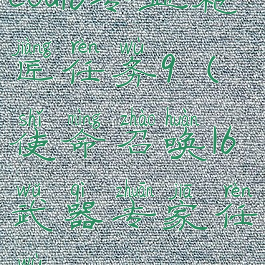 jiàng rèn wù
匠任务9（
shǐ mìng zhào huàn
使命召唤16
wǔ qì zhuān jiā rèn
武器专家任